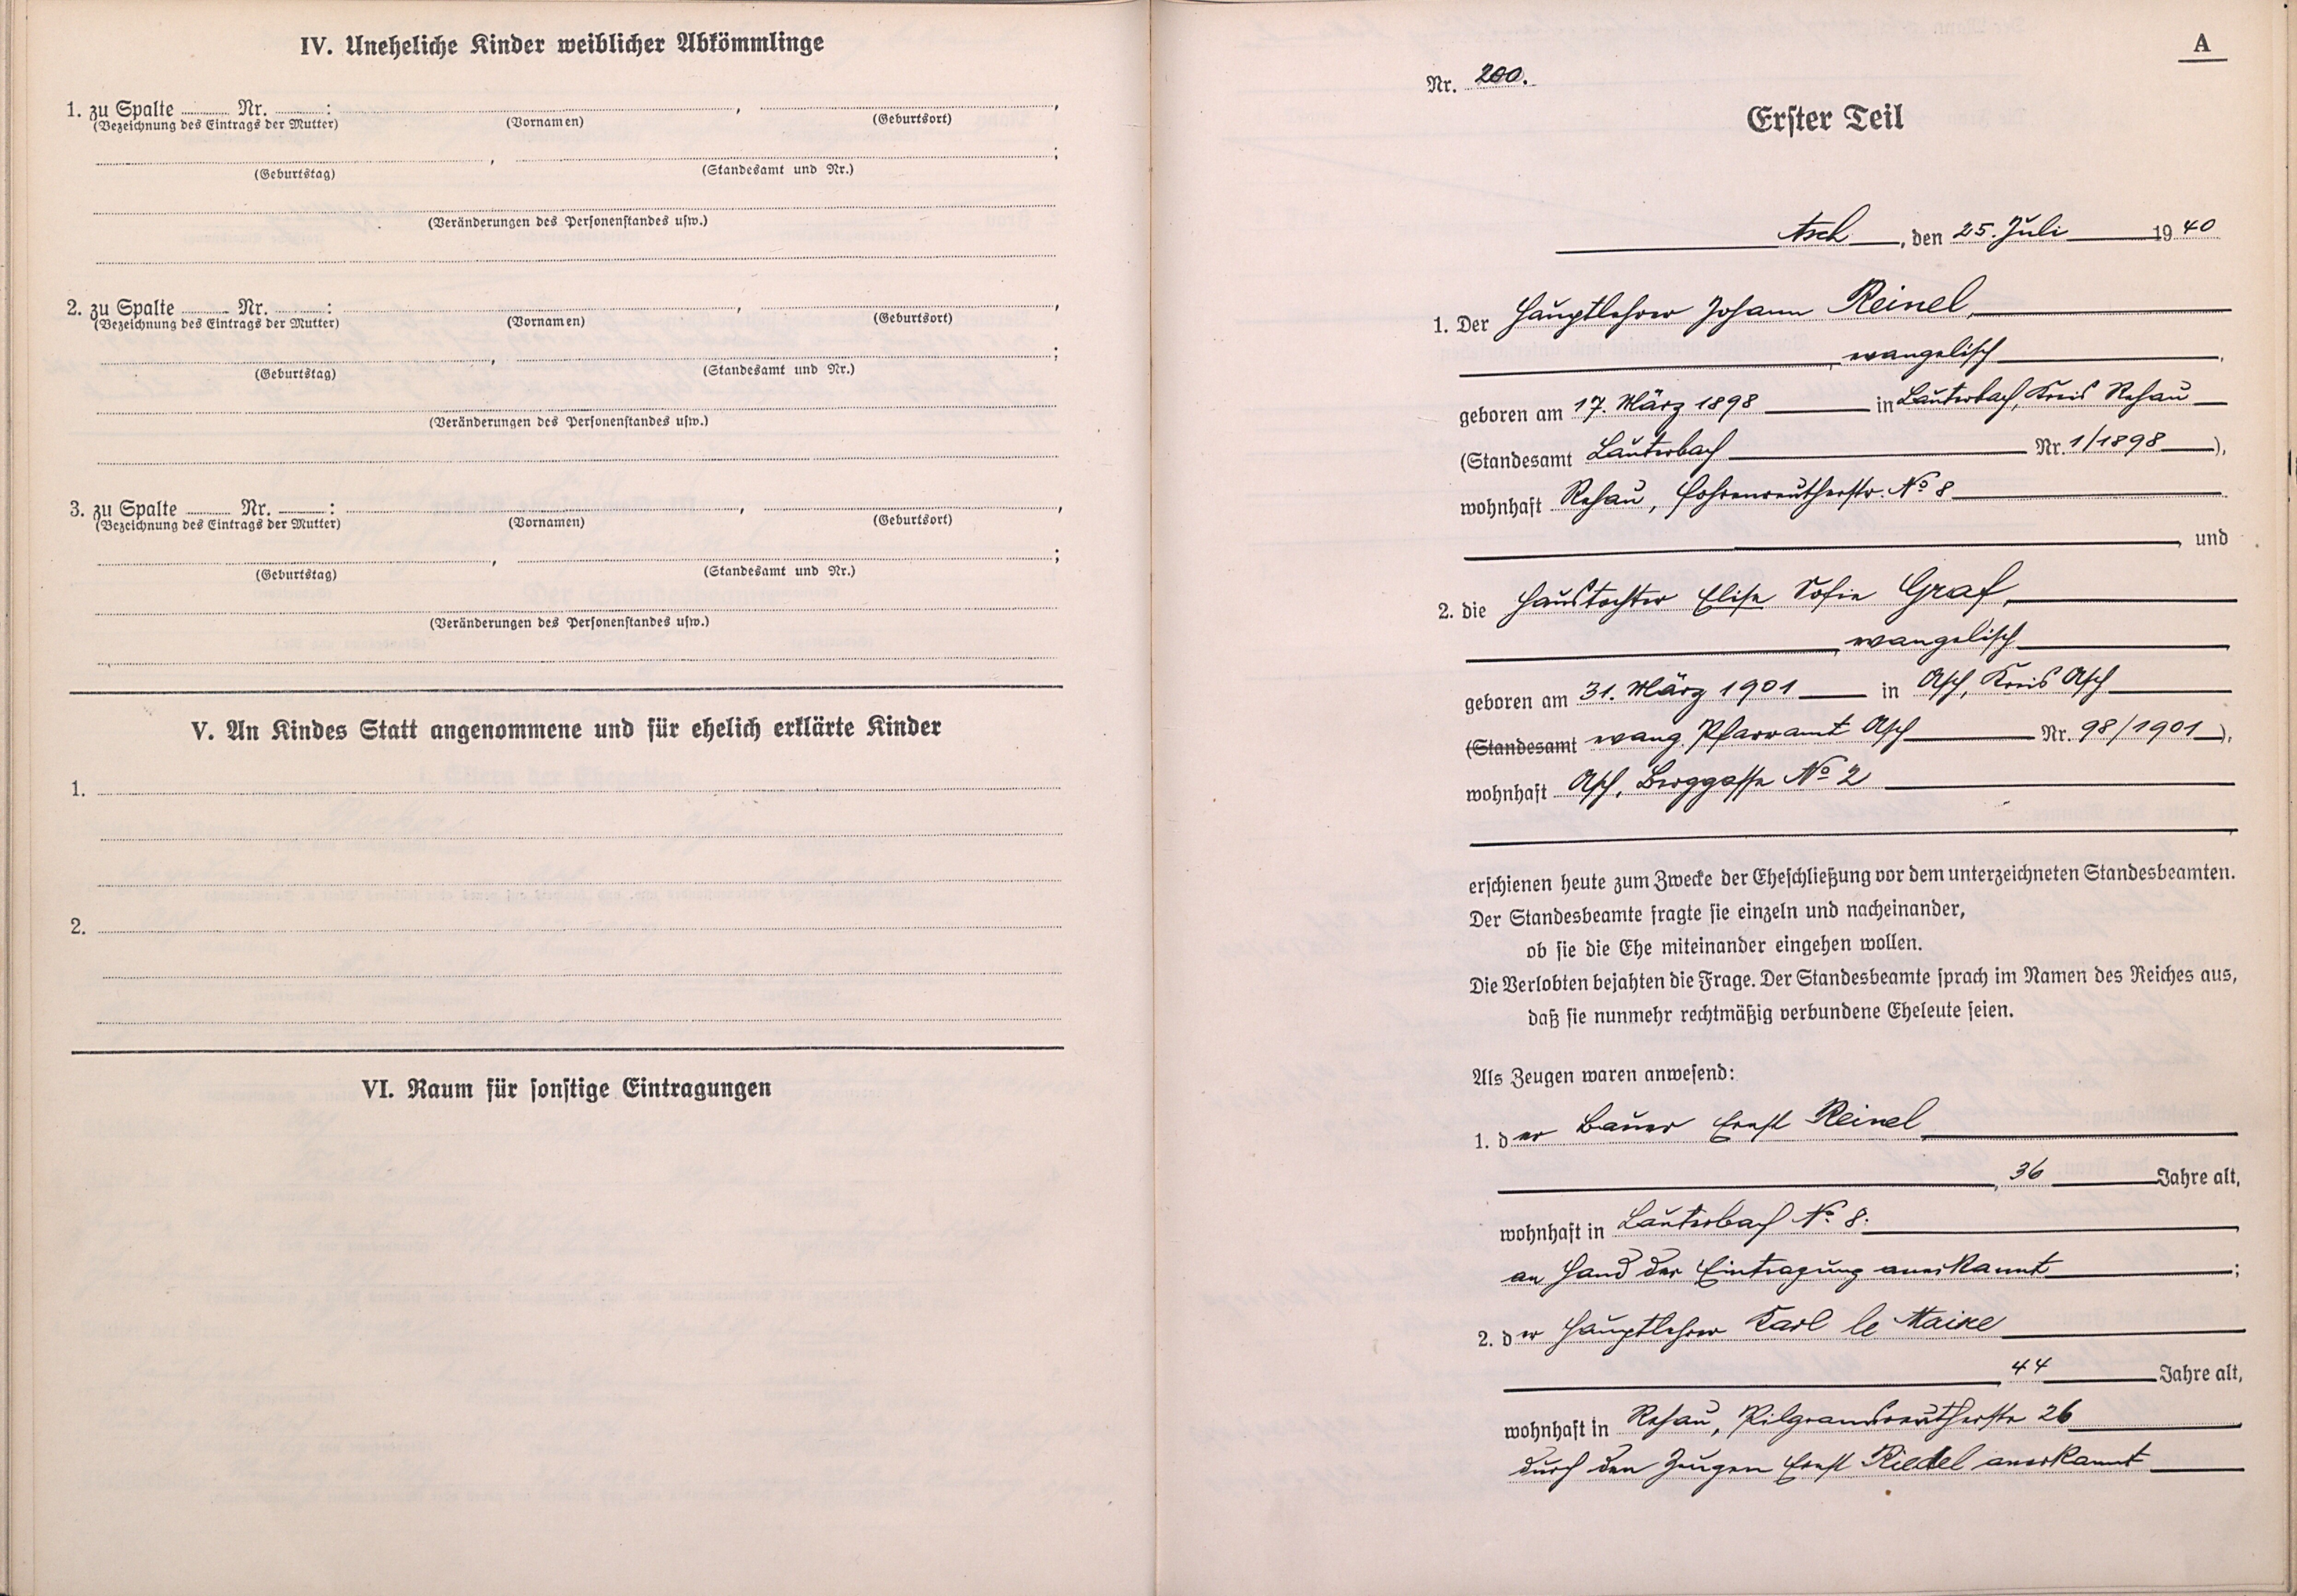 IV. Uneheliche Kinder weiblicher Abkömmlinge
1. zu Spalte ........ Nr. ........ : , ,
(Bezeichnung des Eintrags der Mutter) (Vornamen) (Geburtsort)
, ;
(Geburtstag) (Standesamt und Nr.)
(Veränderungen des Personenstandes usw.)
2. zu Spalte ........ Nr. ........ : , ,
(Bezeichnung des Eintrags der Mutter) (Vornamen) (Geburtsort)
, ;
(Geburtstag) (Standesamt und Nr.)
(Veränderungen des Personenstandes usw.)
3. zu Spalte ........ Nr. ........ : , ,
(Bezeichnung des Eintrags der Mutter) (Vornamen) (Geburtsort)
, ;
(Geburtstag) (Standesamt und Nr.)
(Veränderungen des Personenstandes usw.)
V. An Kindes Statt angenommene und für ehelich erklärte Kinder
1.
2.
VI. Raum für sonstige Eintragungen
A
Nr. 200.
Erster Teil
Asch, den 25. Juli 1940
1. Der Hauptlehrer Johann Reinel,
, evangelisch,
geboren am 17. März 1898 in Lauterbach, Kreis Rehau
(Standesamt Lauterbach Nr. 1/1898),
wohnhaft Rehau, Fohrenreutherstr. No 8
, und
2. die Haustochter Elise Sofie Graf,
, evangelisch
geboren am 31. März 1901 in Asch, Kreis Asch
(Standesamt evang. Pfarramt Asch Nr. 98/1901),
wohnhaft Asch, Berggasse No 2
erschienen heute zum Zwecke der Eheschließung vor dem unterzeichneten Standesbeamten.
Der Standesbeamte fragte sie einzeln und nacheinander,
ob sie die Ehe miteinander eingehen wollen.
Die Verlobten bejahten die Frage. Der Standesbeamte sprach im Namen des Reiches aus,
daß sie nunmehr rechtmäßig verbundene Eheleute seien.
Als Zeugen waren anwesend:
1. der Bauer Ernst Reinel
, 36 Jahre alt,
wohnhaft in Lauterbach No 8.
an Hand der Eintragung anerkannt ;
2. der Hauptlehrer Karl le Maire
, 44 Jahre alt,
wohnhaft in Rehau, Pilgramsreutherstr 26
durch den Zeugen Ernst Riedel anerkannt